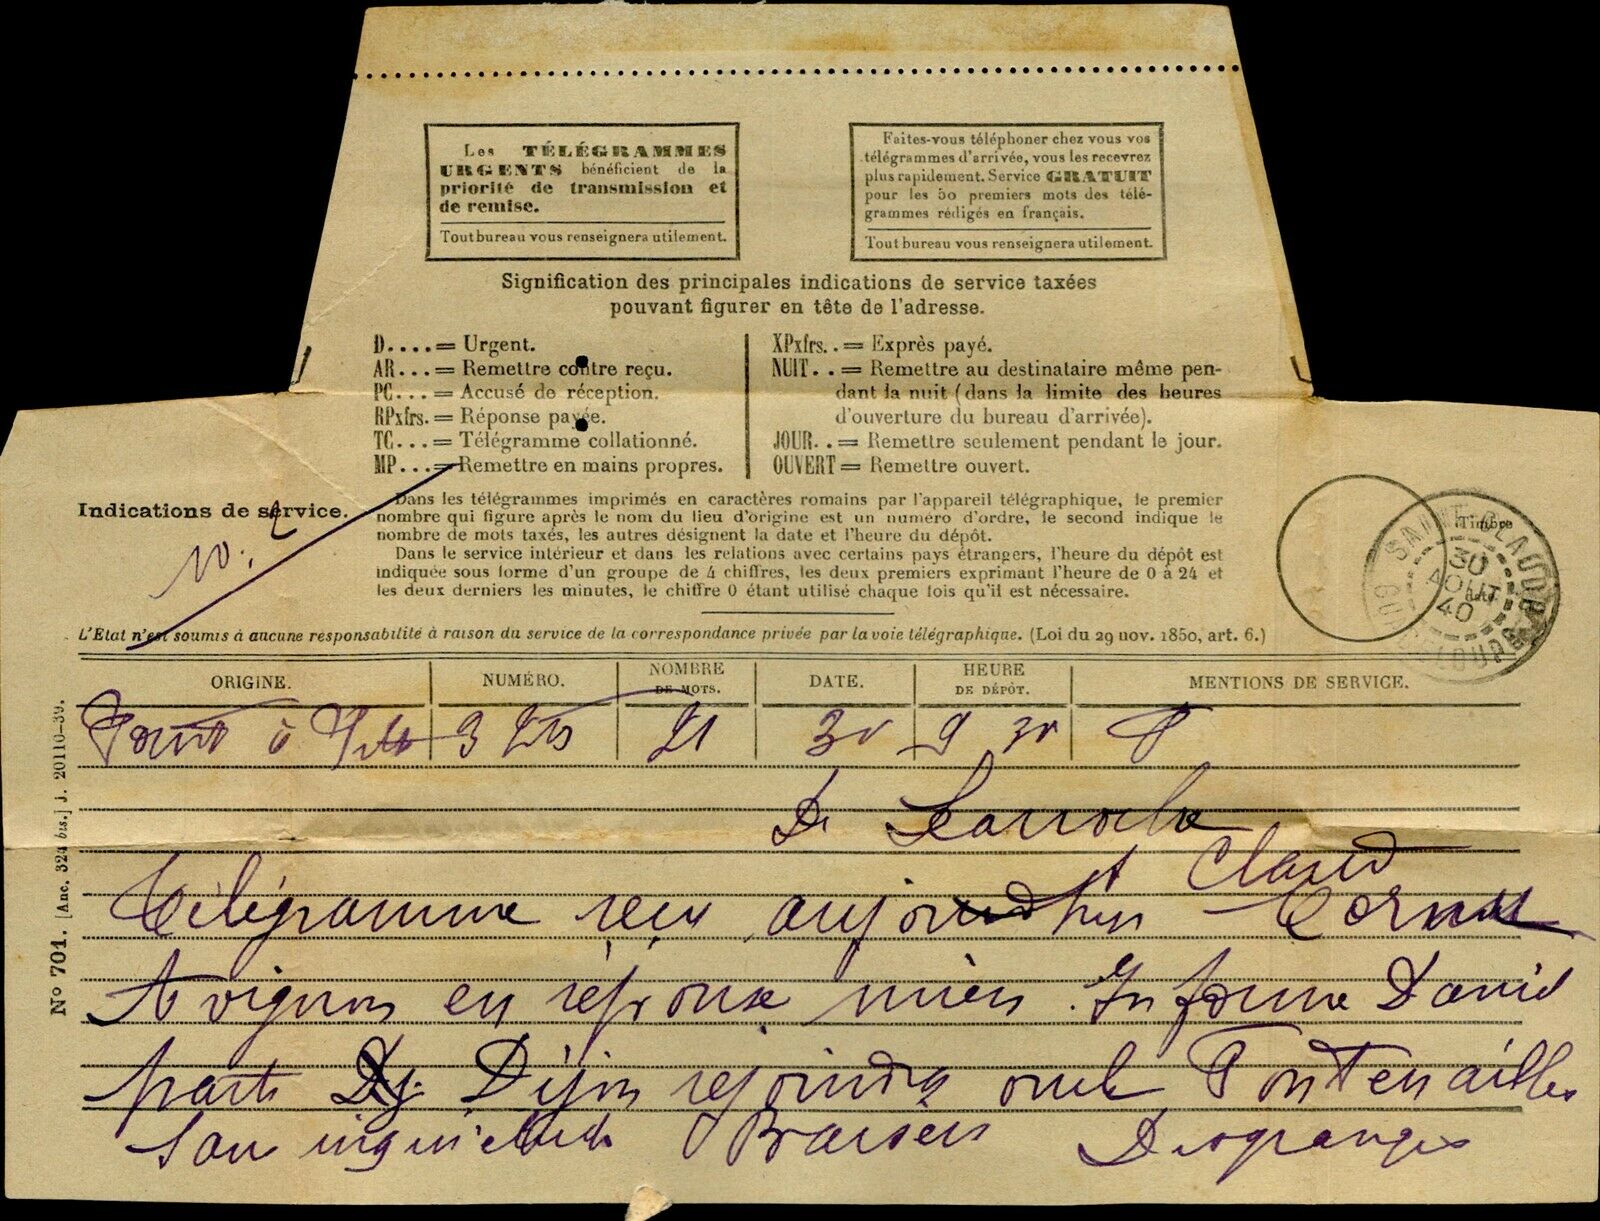 Les TÉLÉGRAMMES
URGENTS bénéficient de la
priorité de transmission et
de remise.
Tout bureau vous renseignera utilement.
Faites-vous téléphoner chez vous vos
télégrammes d'arrivée, vous les recevrez
plus rapidement. Service GRATUIT
pour les 50 premiers mots des télé-
grammes rédigés en français.
Tout bureau vous renseignera utilement.
Signification des principales indications de service taxées
pouvant figurer en tête de l'adresse.
D....= Urgent.
AR...= Remettre contre reçu.
PC...= Accusé de réception.
RPxfrs.= Réponse payée.
TC...= Télégramme collationné.
MP...= Remettre en mains propres.
XPxfrs..= Exprès payé.
NUIT..= Remettre au destinataire même pen-
dant la nuit (dans la limite des heures
d'ouverture du bureau d'arrivée).
JOUR..= Remettre seulement pendant le jour.
OUVERT= Remettre ouvert.
Indications de service.
Dans les télégrammes imprimés en caractères romains par l'appareil télégraphique, le premier
nombre qui figure après le nom du lieu d'origine est un numéro d'ordre, le second indique le
nombre de mots taxés, les autres désignent la date et l'heure du dépôt.
Dans le service intérieur et dans les relations avec certains pays étrangers, l'heure du dépôt est
indiquée sous forme d'un groupe de 4 chiffres, les deux premiers exprimant l'heure de 0 à 24 et
les deux derniers les minutes, le chiffre 0 étant utilisé chaque fois qu'il est nécessaire.
Timbre
SAINT-CLAUDE
30
AOUT
40
GUADELOUPE
L'État n'est soumis à aucune responsabilité à raison du service de la correspondance privée par la voie télégraphique. (Loi du 29 nov. 1850, art. 6.)
ORIGINE. NUMÉRO. NOMBRE DE MOTS. DATE. HEURE DE DÉPÔT. MENTIONS DE SERVICE.
Pointe à 21 30 9 30
St Claud
Télégramme reçu aujourdhui
Avignon en réponse mien Informe David
parti Dijon rejoindre oncle Fontenailles
Sans inquiétude Baisers Desgranges
N° 701. [Anc. 324 bis.] J. 20110-39.